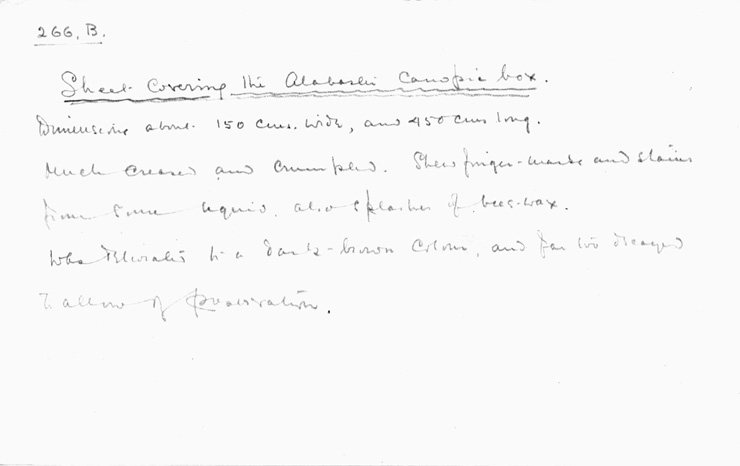 266, B.
Sheet covering the Alabaster Canopic box.
Dimensions about 150 cms. wide, and 450 cms long.
Much creased and crumpled. Shew finger-marks and stains
from some liquid, also splashes of bees-wax.
Was to a dark-brown colour, and far too decayed
to allow of preservation.